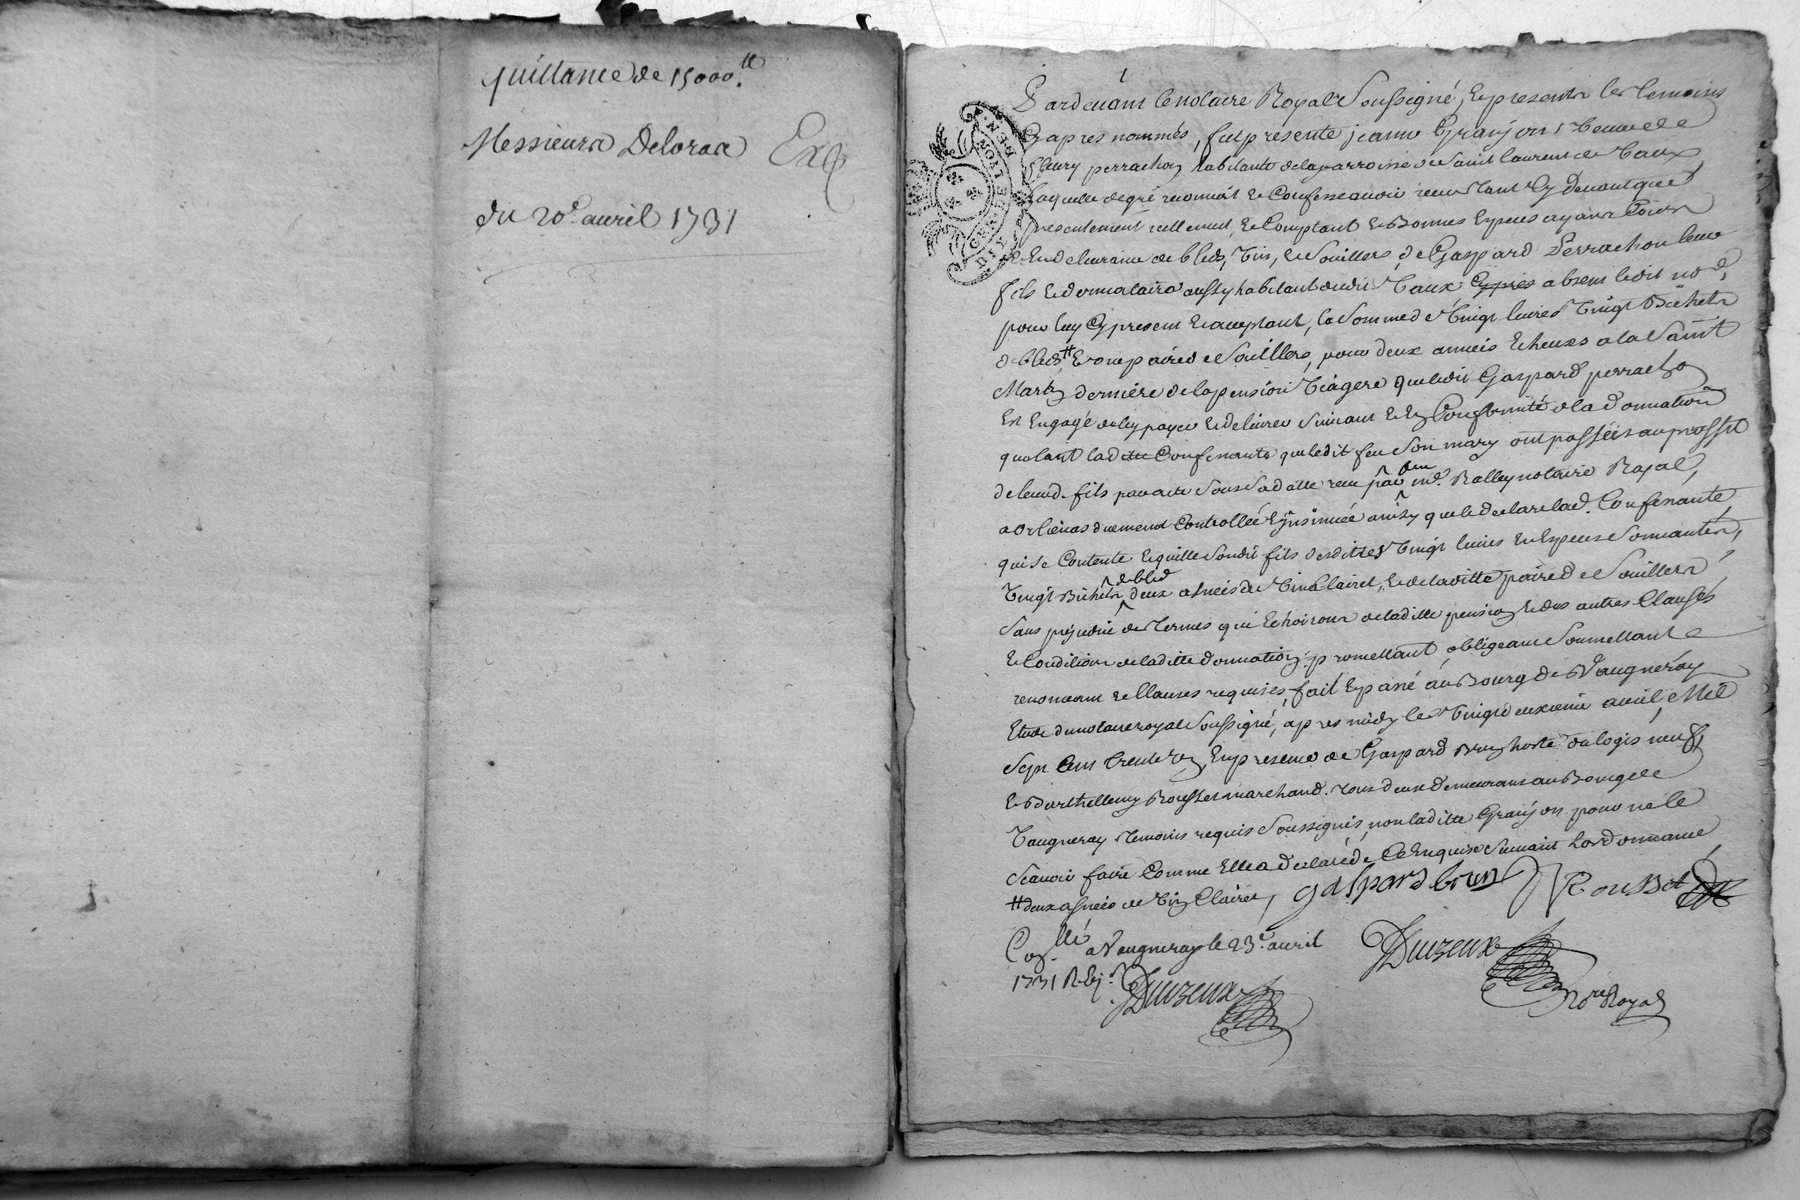 quittance de 15000.ᵗᵗ
Messieurs Deloras
Exp
du 20.ᵉ avril 1731
GEN. DE LION
Pardevant le notaire Royal Soussigné, Et presents les temoins
Cy apres nommés, fut presente jeanne Granjon Veuve de
fleury perrachon habitante de la parroisse de Saint laurent de Vaux,
Laquelle de gré reconnoit Et Confesse avoir receu tant Cy devant que
presentement reellement, Et Comptant En Bonnes Especes ayant Cours
Et En delivrance de bleds, Vin, Et Souillers, de Gaspard Perrachon Son
fils Et donnataire aussy habitant dudit Vaux absent ledit no.ᵉ
pour luy Cy present Et acceptant, la Somme de Vingt livres Vingt Bichets
de bled ᵗᵗ Et une paire de Souillers, pour deux années Echeues a la Saint
Martin derniere de la pension Viagere que ledit Gaspard perrachon
Est Engagé de luy payer Et delivrer Suivant Et En Conformité de la donnation
que tant ladite Confessante que ledit feu Son mary ont passées au proffit
de leurd. fils par acte Sous Sa datte receu par deu.ᵗ m.ᵉ Ralley notaire Royal,
a orlienas duement Controllée Et insinuée ainsy que le declare lad. Confessante
qui Se Contente Et quitte Sondit fils desdittes Vingt livres En Especes Sonnantes,
Vingt Bichets de bled deux asnées de Vin Clairet, Et de laditte paire de Souillers
Sans prejudice des termes qui Echoiront de laditte pension Et des autres Clauses
Et Condition de laditte donnation, promettant, obligeant Soumettant
renonceant Et Clauses requises, fait Et passé au Bourg de Vaugneray
Etude du notaire royal Soussigné, apres midy le Vingt deuxieme avril Mil
Sept Cent trente Un, En presence de Gaspard Brun hoste du logis neuf,
Et Barthellemy Rousset marchand. tous deux demeurants au Bourg de
Vaugneray temoins requis Soussignés, non laditte Granjon pour ne le
Scavoir faire Comme Elle a declaré de Ce Enquise Suivant Lordonnance
ᵗᵗ deux asnées de Vin Clairet, gaspard brun B Rousset
Con.ˡˡᵉ a Vaugneray le 23.ᵉ avril
1731 R.
Duvzeux
Duvzeux
No.ʳᵉ Royal